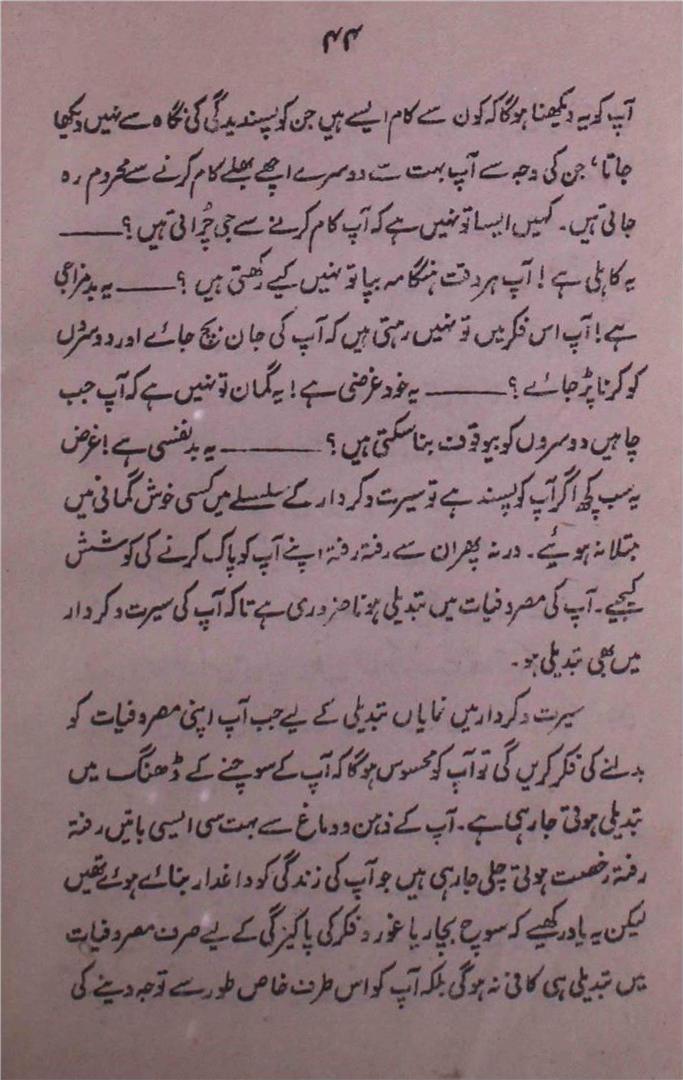 ۴۴
آپ کو یہ دیکھنا ہوگا کہ کون سے کام ایسے ہیں جن کو پسندیدگی کی نگاہ سے نہیں دیکھا
جاتا، جن کی وجہ سے آپ بہت سے دوسرے اچھے بھلے کام کرنے سے محروم رہ
جاتی ہیں۔ کہیں ایسا تو نہیں ہے کہ آپ کام کرنے سے جی چُراتی ہیں؟ ——
یہ کاہلی ہے! آپ ہر وقت ہنگامہ بپا تو نہیں کیے رکھتی ہیں؟ —— یہ بد مزاجی
ہے! آپ اس فکر میں تو نہیں رہتی ہیں کہ آپ کی جان بچ جائے اور دوسروں
کو کرنا پڑ جائے؟ —— یہ خود غرضی ہے! یہ گمان تو نہیں ہے کہ آپ جب
چاہیں دوسروں کو بیوقوف بنا سکتی ہیں؟ —— یہ بد نفسی ہے! غرض
یہ سب کچھ اگر آپ کو پسند ہے تو سیرت و کردار کے سلسلے میں کسی خوش گمانی میں
مبتلا نہ ہوئیے۔ ورنہ پھر ان سے رفتہ رفتہ اپنے آپ کو پاک کرنے کی کوشش
کیجیے۔ آپ کی مصروفیات میں تبدیلی ہونا ضروری ہے تاکہ آپ کی سیرت و کردار
میں بھی تبدیلی ہو۔
سیرت و کردار میں نمایاں تبدیلی کے لیے جب آپ اپنی مصروفیات کو
بدلنے کی فکر کریں گی تو آپ کو محسوس ہوگا کہ آپ کے سوچنے کے ڈھنگ میں
تبدیلی ہوتی جا رہی ہے۔ آپ کے ذہن و دماغ سے بہت سی ایسی باتیں رفتہ
رفتہ رخصت ہوتی چلی جا رہی ہیں جو آپ کی زندگی کو داغدار بنائے ہوئے تھیں
لیکن یہ یاد رکھیے کہ سوچ بچار یا غور و فکر کی پاکیزگی کے لیے صرف مصروفیات
میں تبدیلی ہی کافی نہ ہوگی بلکہ آپ کو اس طرف خاص طور سے توجہ دینے کی